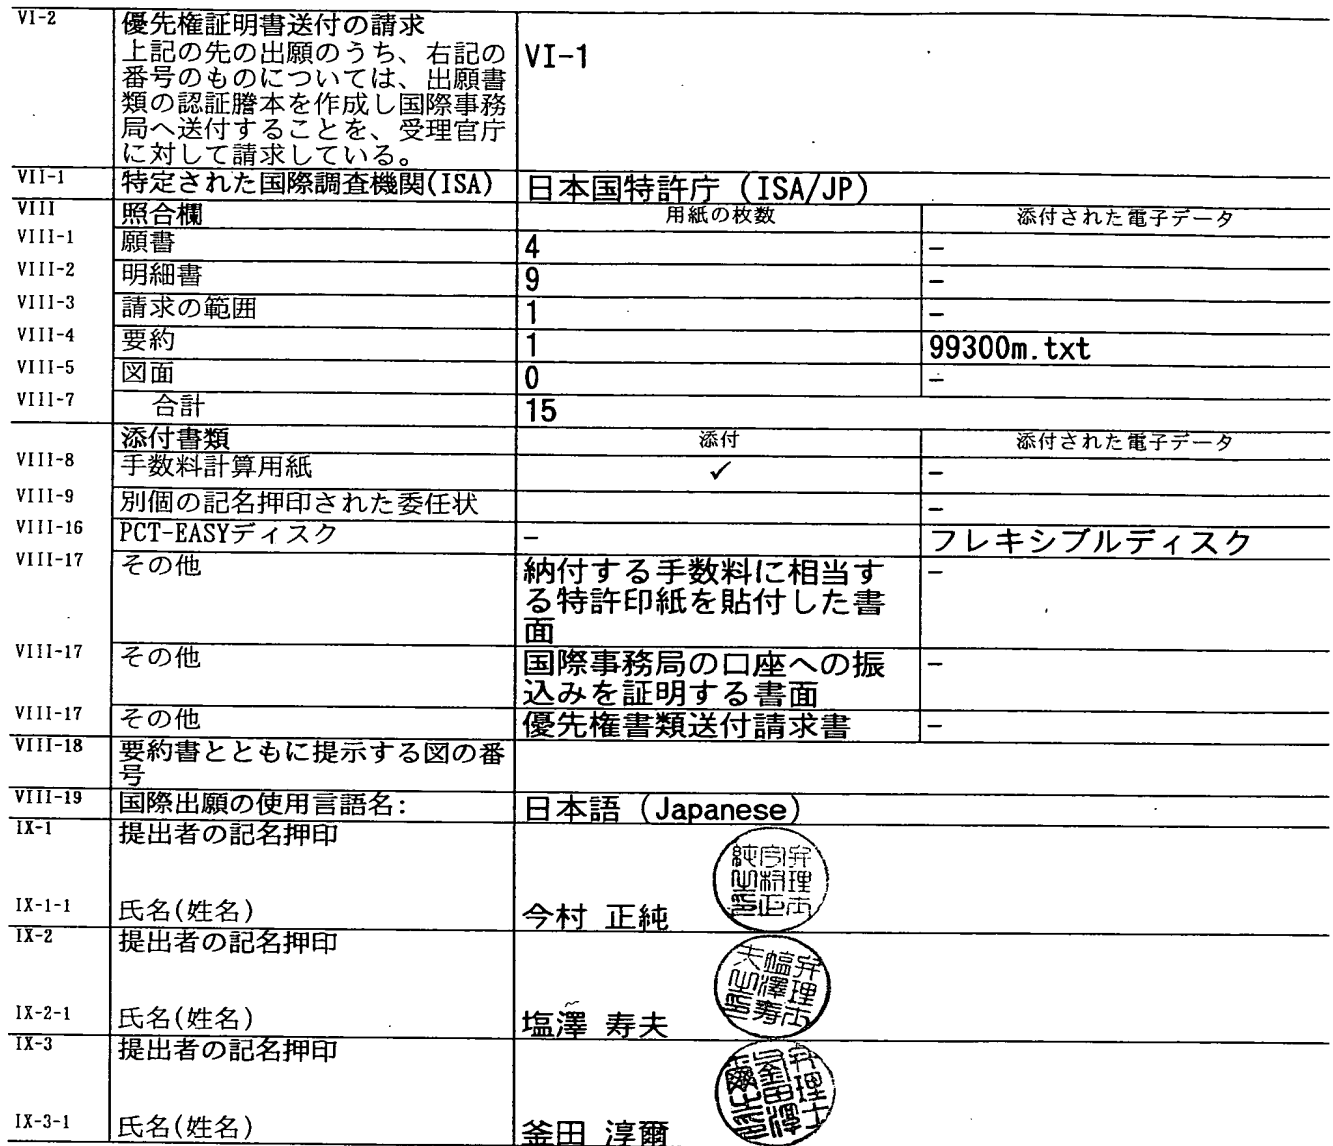 VI-2
優先権証明書送付の請求
上記の先の出願のうち、右記の
番号のものについては、出願書
類の認証謄本を作成し国際事務
局へ送付することを、受理官庁
に対して請求している。
VI-1
VII-1 特定された国際調査機関(ISA) 日本国特許庁 (ISA/JP)
VIII 照合欄 用紙の枚数 添付された電子データ
VIII-1 願書 4 -
VIII-2 明細書 9 -
VIII-3 請求の範囲 1 -
VIII-4 要約 1 99300m.txt
VIII-5 図面 0 -
VIII-7 合計 15
添付書類 添付 添付された電子データ
VIII-8 手数料計算用紙 ✓ -
VIII-9 別個の記名押印された委任状 -
VIII-16 PCT-EASYディスク - フレキシブルディスク
VIII-17 その他 納付する手数料に相当す -
る特許印紙を貼付した書
面
VIII-17 その他 国際事務局の口座への振 -
込みを証明する書面
VIII-17 その他 優先権書類送付請求書 -
VIII-18 要約書とともに提示する図の番
号
VIII-19 国際出願の使用言語名: 日本語 (Japanese)
IX-1 提出者の記名押印
IX-1-1 氏名(姓名) 今村 正純
IX-2 提出者の記名押印
IX-2-1 氏名(姓名) 塩澤 寿夫
IX-3 提出者の記名押印
IX-3-1 氏名(姓名) 釜田 淳爾